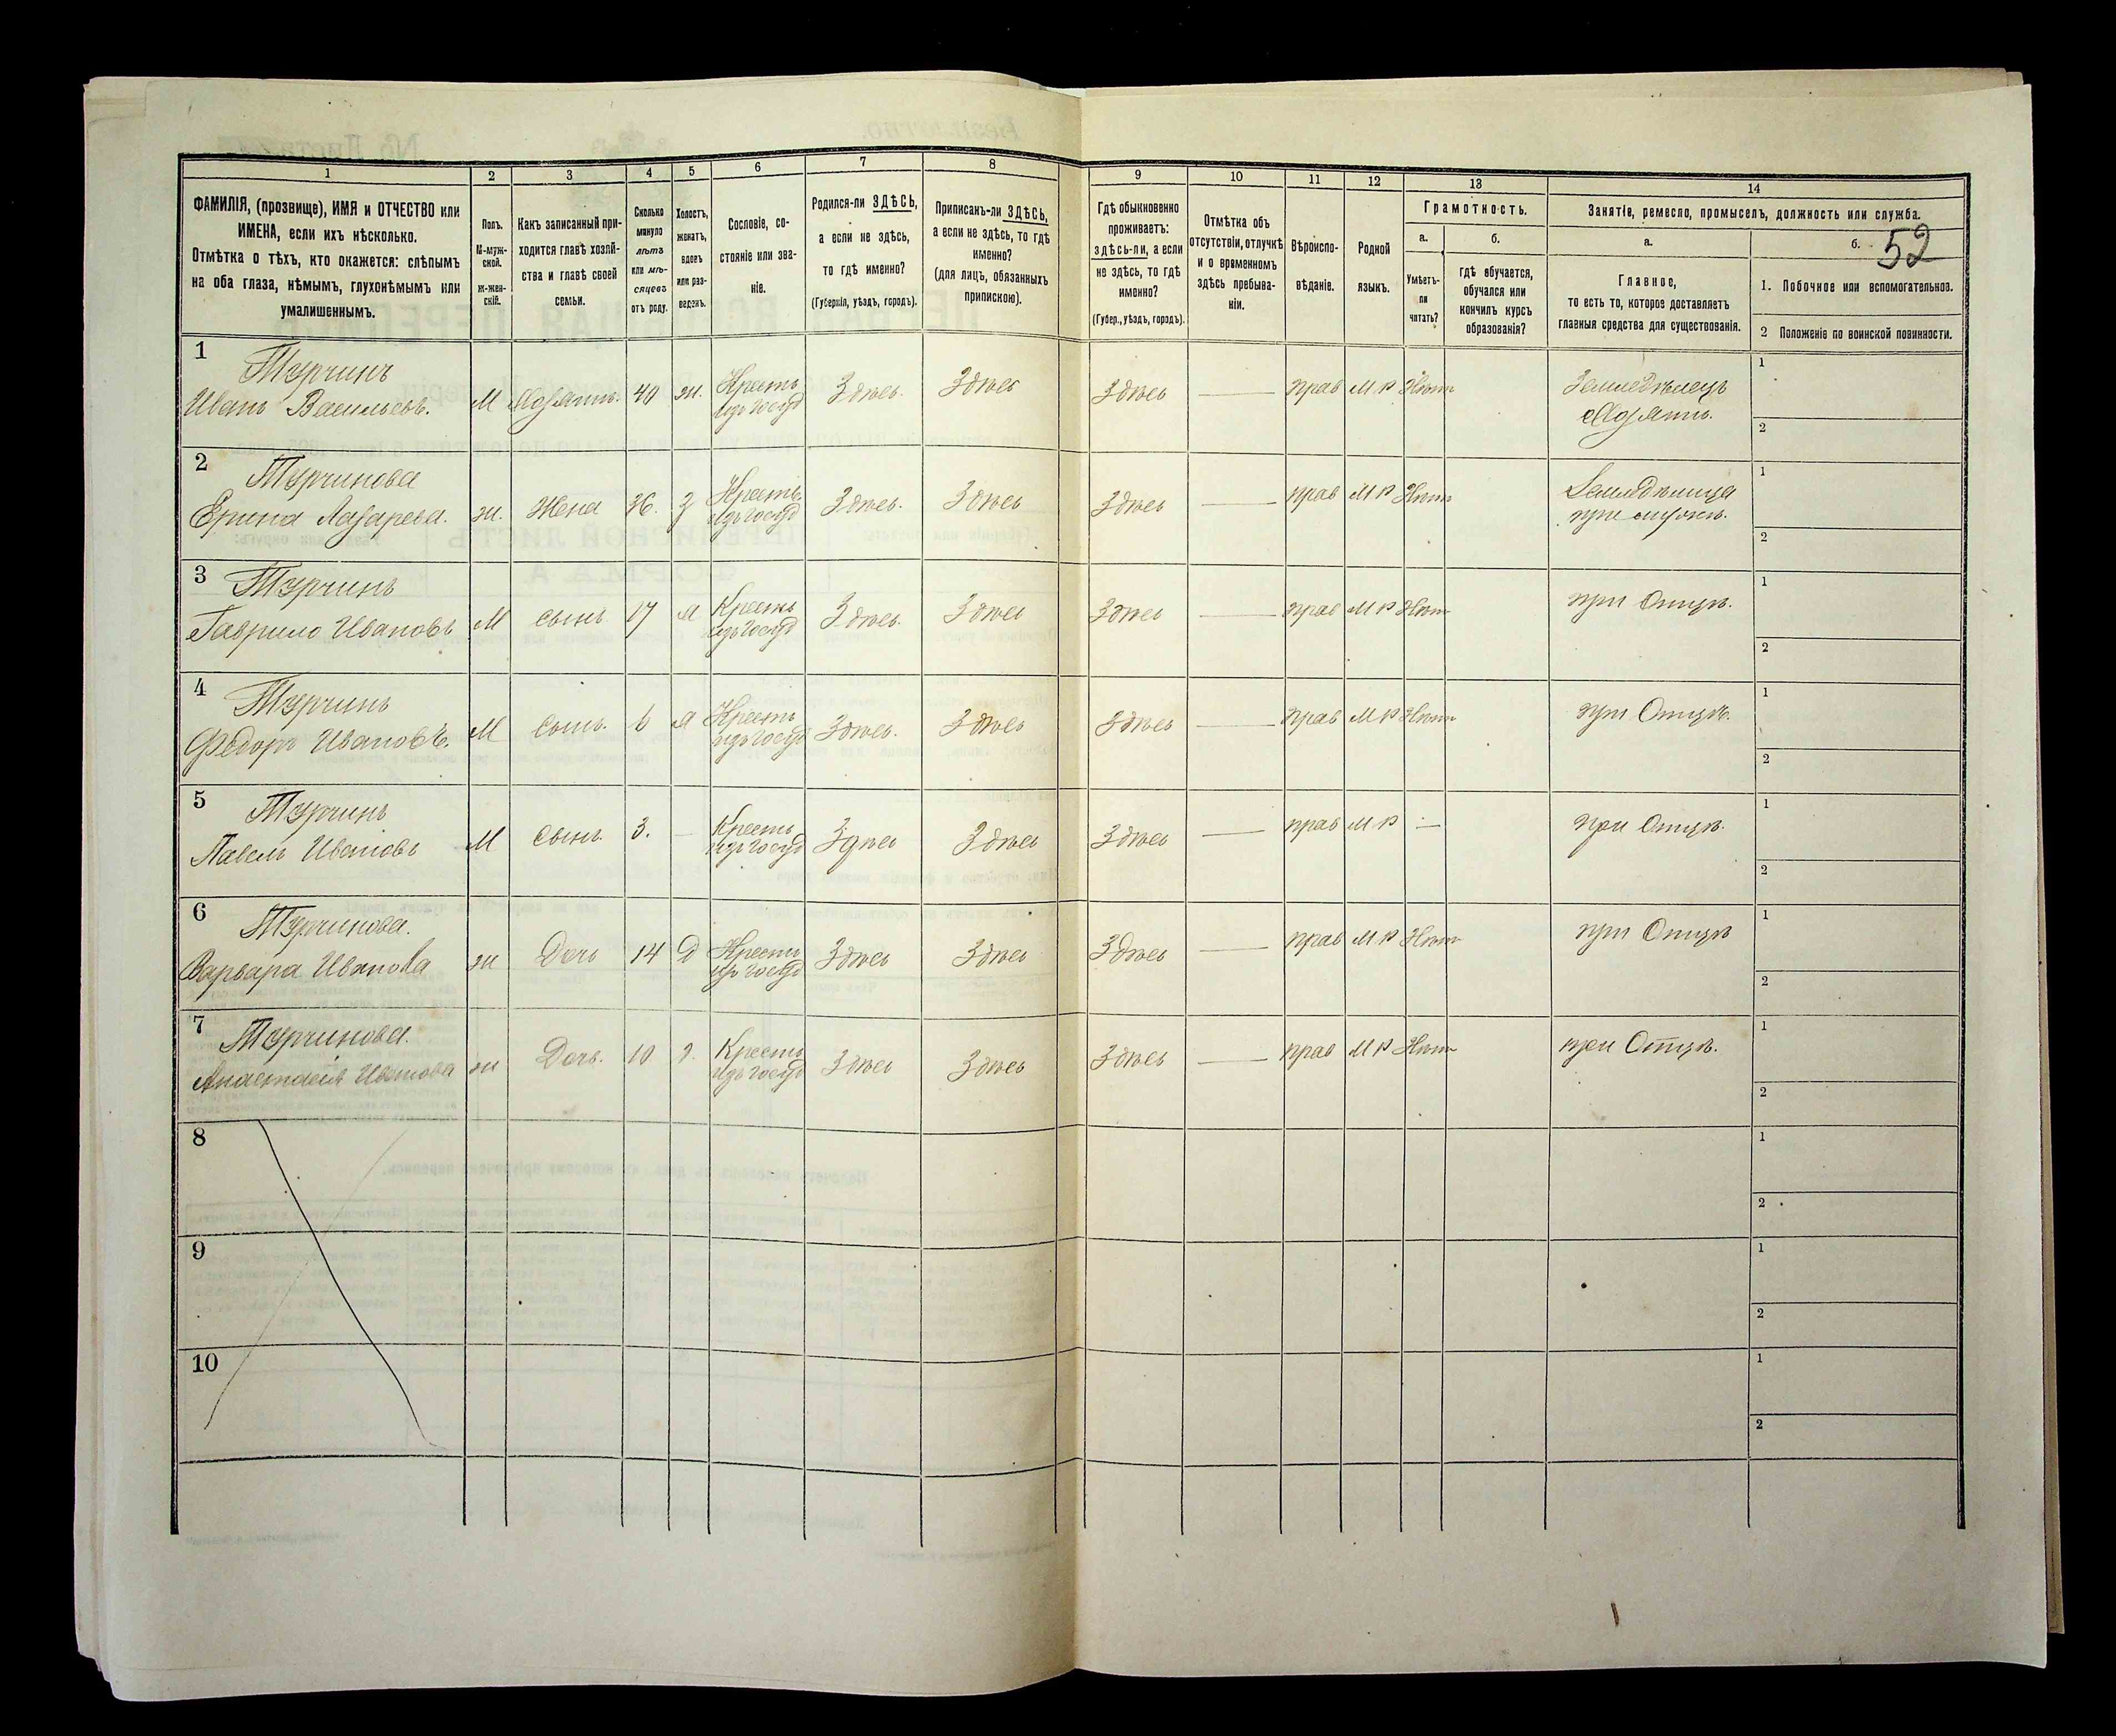 1
2
3
4
5
6
7
8
9
10
11
12
13
14
ФАМИЛІЯ, (прозвище), ИМЯ и ОТЧЕСТВО или
ИМЕНА, если ихъ нѣсколько.
Отмѣтка о тѣхъ, кто окажется: слѣпымъ
на оба глаза, нѣмымъ, глухонѣмымъ или
умалишеннымъ.
Полъ.
М-муж-
ской.
ж-жен-
скій.
Какъ записанный при-
ходится главѣ хозяй-
ства и главѣ своей
семьи.
Сколько
минуло
лѣтъ
или мѣ-
сяцевъ
отъ роду.
Холостъ,
женатъ,
вдовъ
или раз-
веденъ.
Сословіе, со-
стояніе или зва-
ніе.
Родился-ли ЗДѢСЬ,
а если не здѣсь,
то гдѣ именно?
(Губернія, уѣздъ, городъ).
Приписанъ-ли ЗДѢСЬ,
а если не здѣсь, то гдѣ
именно?
(для лицъ, обязанныхъ
припискою).
Гдѣ обыкновенно
проживаетъ:
здѣсь-ли, а если
не здѣсь, то гдѣ
именно?
(Губер., уѣздъ, городъ).
Отмѣтка объ
отсутствіи, отлучкѣ
и о временномъ
здѣсь пребыва-
ніи.
Вѣроиспо-
вѣданіе.
Родной
языкъ.
Грамотность.
а.
б.
Умѣетъ-
ли
читать?
гдѣ обучается,
обучался или
кончилъ курсъ
образованія?
Занятіе, ремесло, промыселъ, должность или служба.
а.
б.
52
Главное,
то есть то, которое доставляетъ
главныя средства для существованія.
1. Побочное или вспомогательное.
2 Положеніе по воинской повинности.
1
Турчинъ
Иванъ Васильевъ.
М
Хозяинъ.
40
ж.
Крестъ
изъ госуд
Здѣсь.
Здѣсь
Здѣсь
прав
М Р
Нѣт
Земледѣлецъ
Хозяинъ.
1
2
2
Турчинова
Ерина Лазарева.
ж.
Жена
36.
З
Крестъ.
изъ госуд
Здѣсь.
Здѣсь
Здѣсь
прав
М Р
Нѣт
Земледѣлица
при мужѣ.
1
2
3
Турчинъ
Гаврило Ивановъ
М
сынъ
17
Х
Крестъ
изъ госуд
Здѣсь.
Здѣсь
Здѣсь
прав
М Р
Нѣт
при Отцѣ.
1
2
4
Турчинъ
Федоръ Ивановъ.
М
сынъ.
6
Х
Крестъ
изъ госуд
Здѣсь.
Здѣсь
Здѣсь
прав
М Р
Нѣт
при Отцѣ.
1
2
5
Турчинъ
Павелъ Ивановъ
М
сынъ.
3.
Крестъ
изъ госуд
Здѣсь
Здѣсь
Здѣсь
прав
М Р
при Отцѣ.
1
2
6
Турчинова.
Варвара Иванова
ж
Дочь
14
Д
Крестъ
изъ госуд
Здѣсь
Здѣсь
Здѣсь
прав
М Р
Нѣт
при Отцѣ
1
2
7
Турчинова.
Анастасія Иванова
ж
Дочь.
10
Д.
Крестъ
изъ госуд
Здѣсь
Здѣсь
Здѣсь
прав
М Р
Нѣт
при Отцѣ.
1
2
8
1
2
9
1
2
10
1
2